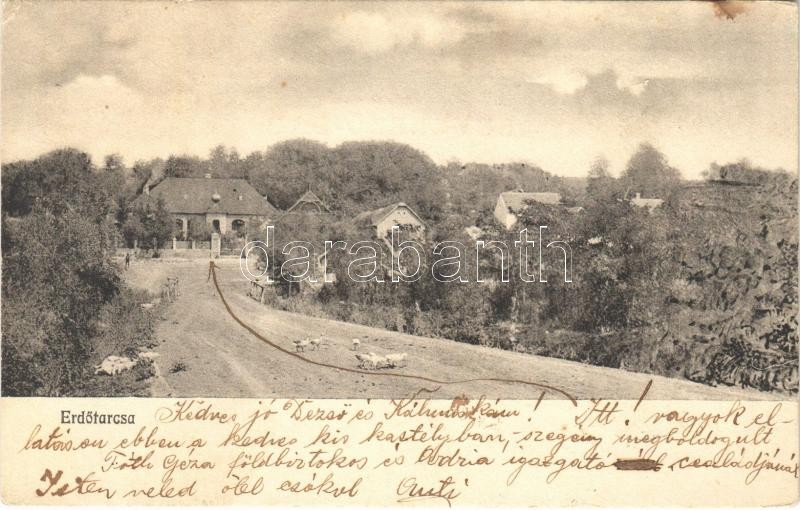 darabanth.com
Erdőtarcsa Kedves jó Dezső és Kálmánkám! Itt! vagyok el-
latáson ebben a kedves kis kastélyban, szegény megboldogult
Fóth Géza földbirtokos és Adria igazgató családjánál
Isten veled ölel csókol Anti